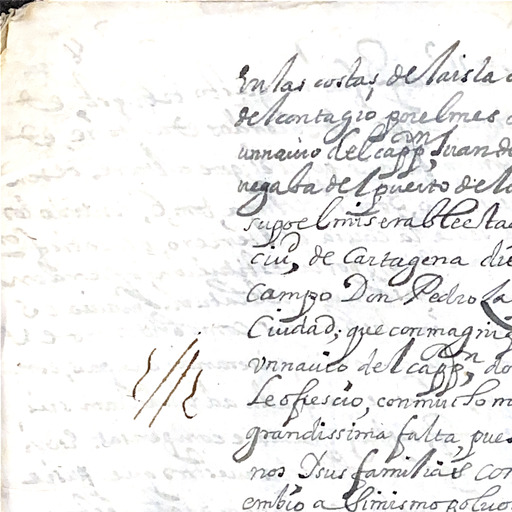 En las costas, de la isla
del contagio, por el mes
un nauio del capp.on Juan de
uegaba del puerto de
supo el miserable esta
ciud, de Cartagena
Campo Don Pedro
Ciudad; que con magni
Vn nauio del capp.on,
Le ofrescio, con mucho
grandissima falta, pues
nos Dsus familias con
embio a Simismo